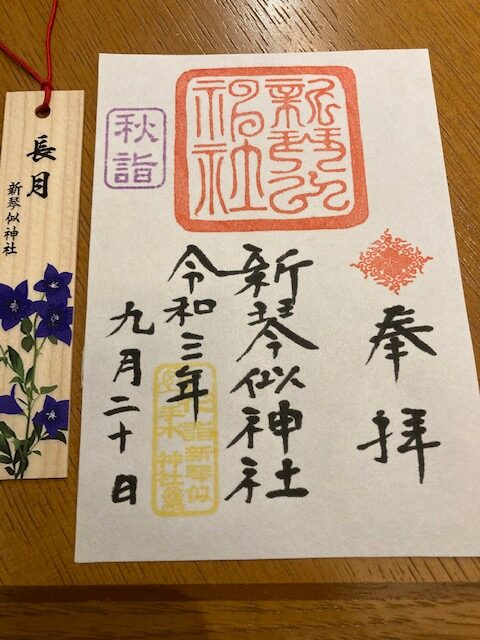 長月
新琴似神社
秋詣
新琴似
神社
奉拝
新琴似神社
令和三年
九月二十日